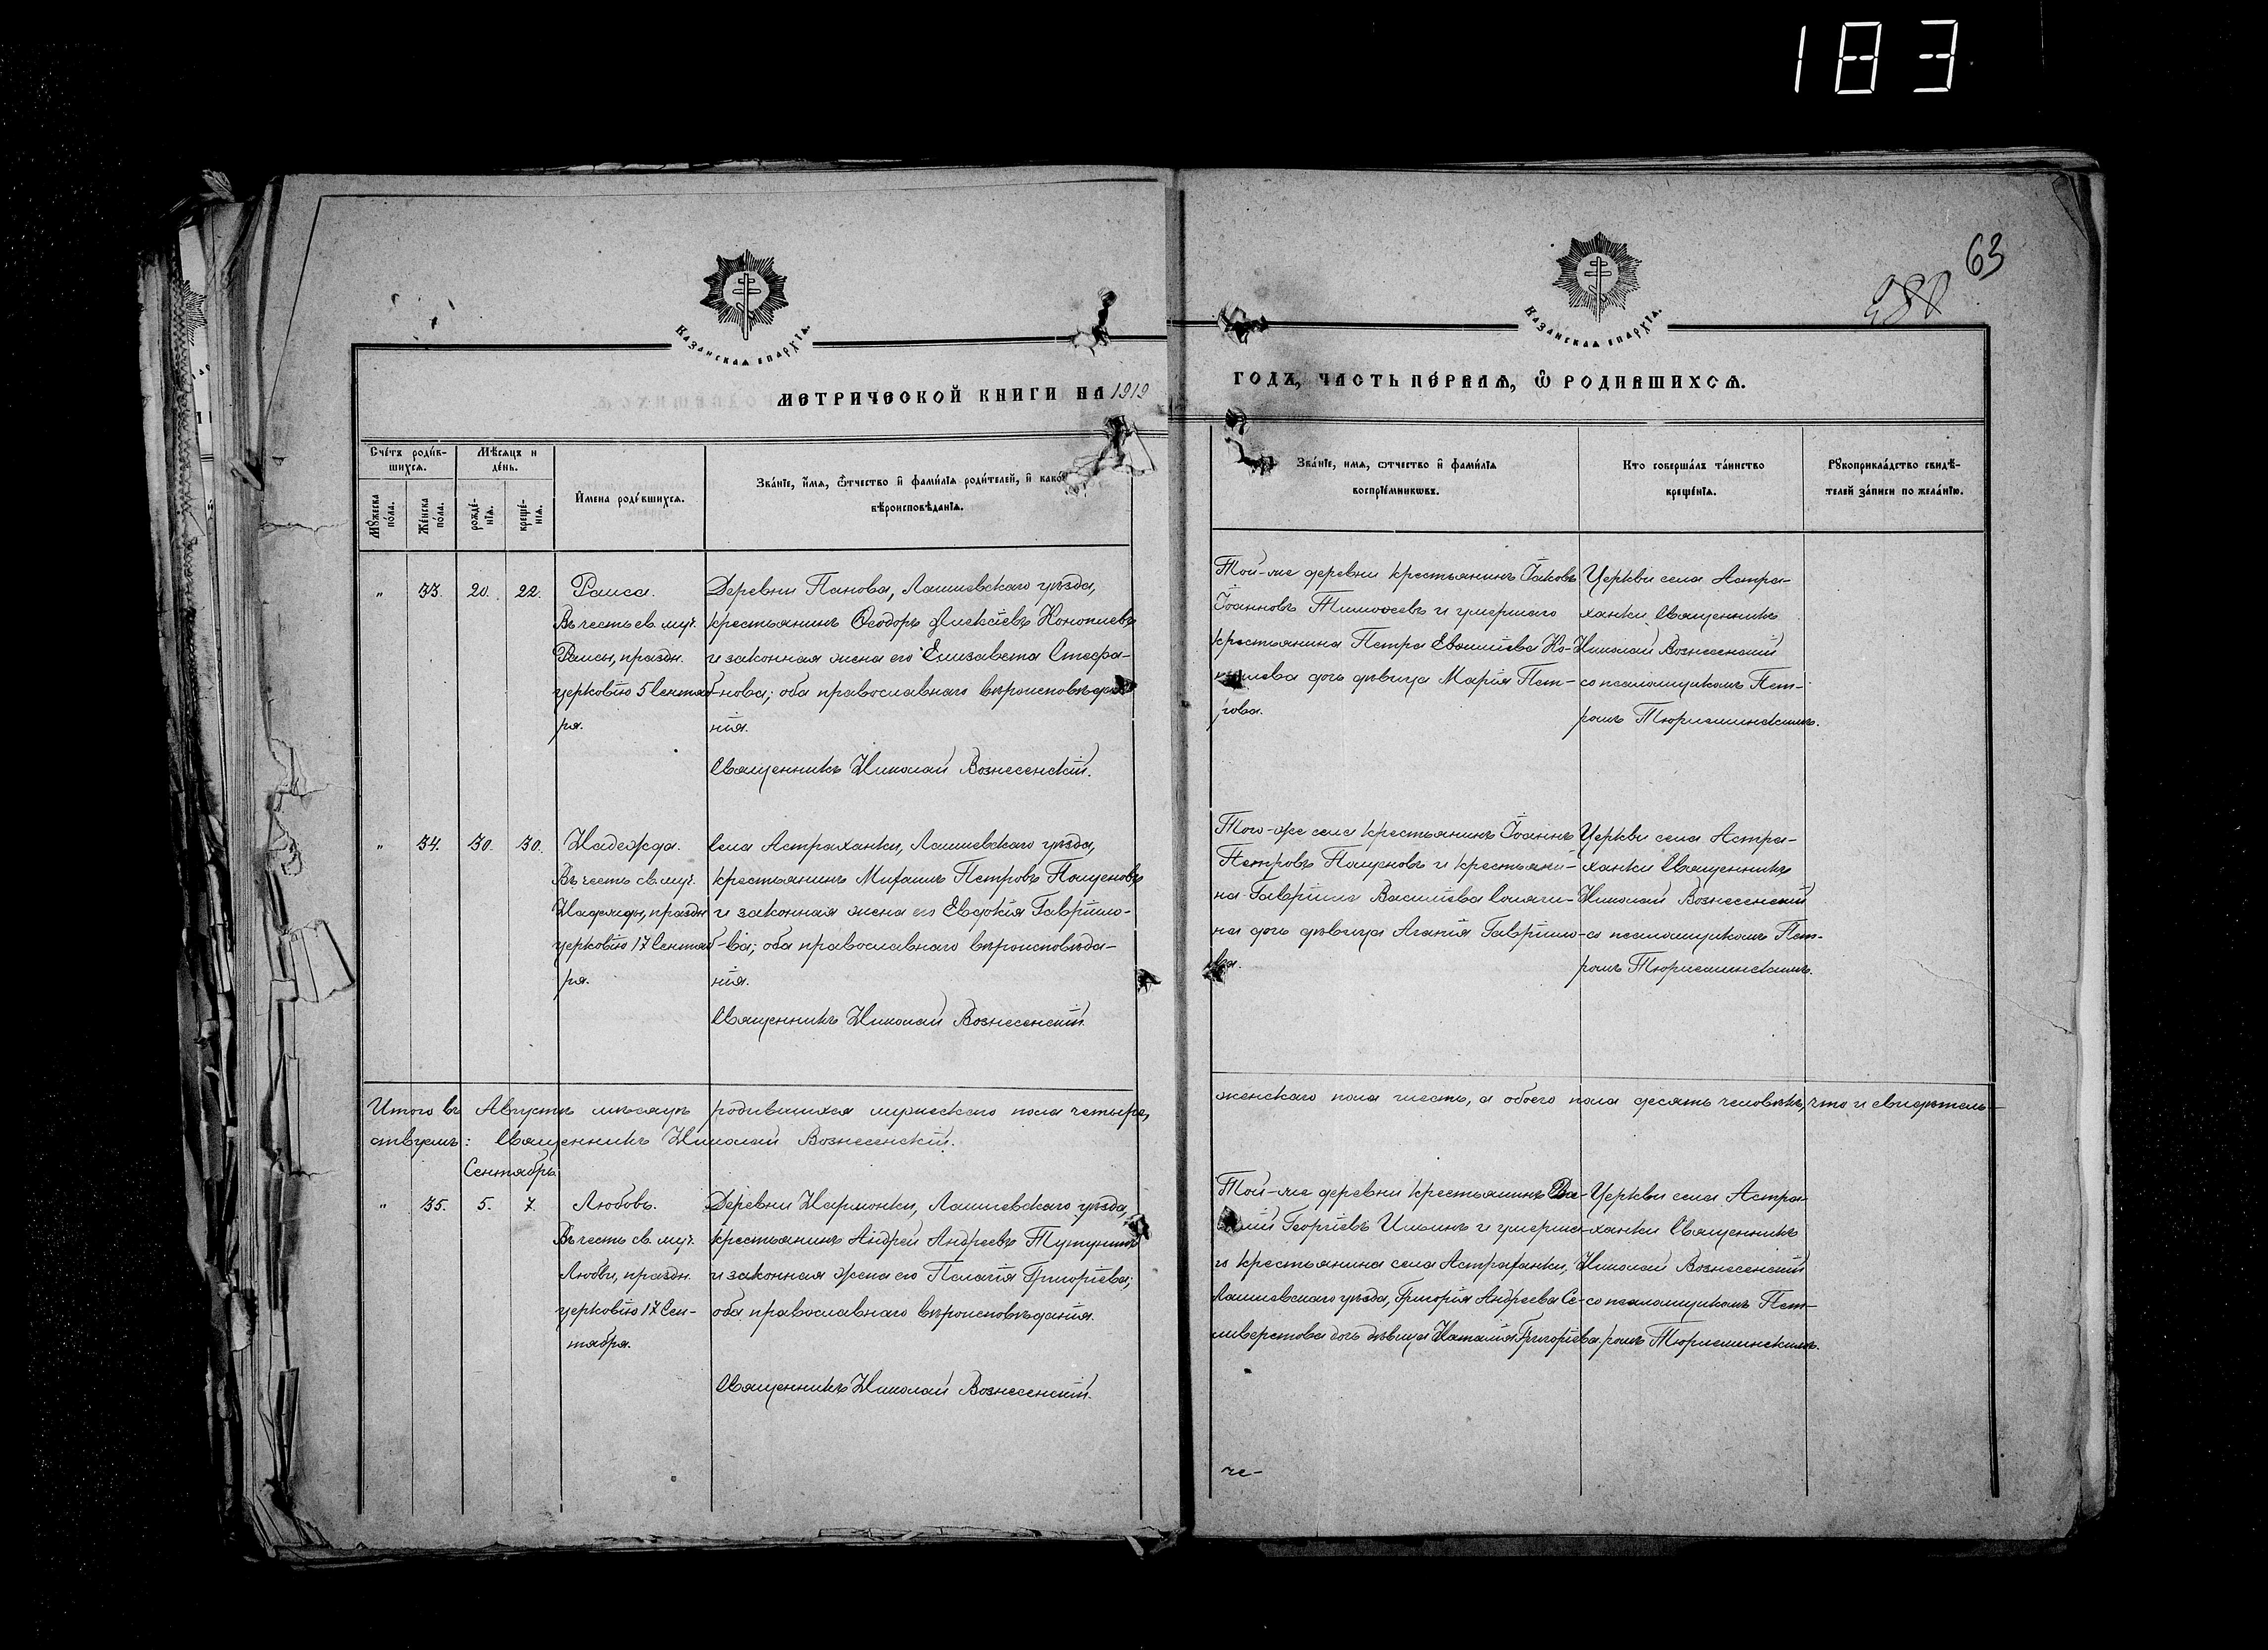 183
63
280
Казанская епархія.
Казанская епархія.
МЕТРИЧЕСКОЙ КНИГИ НА 1919
ГОДЪ, ЧАСТЬ ПЕ́РВАЯ, Ѿ РОДИВШИХСЯ.
Сче́тъ роди́в-
шихся.
Мѣ́сяцъ и
де́нь.
Мꙋ́жеска
по́ла.
Же́нска
по́ла.
рожде́-
нїя.
креще́-
нїя.
И҆мена роди́вшихся.
Зва́нїе, и҆́мя, ѻ҆́тчество и҆ фами́лїя роди́телей, и҆ како́й
вѣроисповѣ́данїя.
Зва́нїе, имя, ѻтчество и҆ фами́лїя
воспрїе́мникωвъ.
Кто соверша́лъ та́инство
креще́нїя.
Рꙋкоприкла́дство свидѣ́-
телей за́писи по жела́нїю.
„ 33. 20. 22. Раиса.
Въ честь св. муч.
Раисы, праздн.
церковію 5 Сентяб-
ря.
Деревни Панова, Лаишевскаго уѣзда,
крестьянинъ Ѳеодоръ Алексіевъ Коноплевъ
и законная жена его Елизавета Стефа-
нова; оба православнаго вѣроисповѣда-
нія.
Священникъ Николай Вознесенскій.
Той-же деревни крестьянинъ Іаковъ
Іоанновъ Тимоѳеевъ и умершаго
крестьянина Петра Ко-
плева дочь дѣвица Марія Пет-
рова.
Церкви села Астра-
ханки Священникъ
Николай Вознесенскій
со псаломщикомъ Пет-
ромъ
„ 34. 30. 30. Надежда.
Въ честь св. муч.
Надежды, праздн.
церковію 17 Сентяб-
ря.
Села Астраханки, Лаишевскаго уѣзда,
крестьянинъ Михаилъ Петровъ
и законная жена его Евдокія Гаврило-
ва; оба православнаго вѣроисповѣда-
нія.
Священникъ Николай Вознесенскій.
Того-же села крестьянинъ Іоаннъ
Петровъ и крестьяни-
на Гавріила Василіева
на дочь дѣвица Гаврило-
ва.
Церкви села Астра-
ханки Священникъ
Николай Вознесенскій
со псаломщикомъ Пет-
ромъ
Итого въ Августѣ мѣсяцѣ родившихся мужескаго пола четыре,
женскаго пола шесть, а обоего пола десять человѣкъ, что и свидѣтель-
ствуемъ: Священникъ Николай Вознесенскій.
Сентябрь
„ 35. 5. 7. Любовь.
Въ честь св. муч.
Любви, праздн.
церковію 17 Сен-
тября.
Деревни Нармонки, Лаишевскаго уѣзда,
крестьянинъ Андрей Андреевъ
и законная жена его Пелагія Григоріева;
оба православнаго вѣроисповѣданія.
Священникъ Николай Вознесенскій.
Той-же деревни крестьянинъ Ва-
силій Георгіевъ Ильинъ и умерша-
го крестьянина села Астраханки,
Лаишевскаго уѣзда, Григорія Андреева Се-
ливерстова дочь дѣвица Наталія Григоріева.
Церкви села Астра-
ханки Священникъ
Николай Вознесенскій
со псаломщикомъ Пет-
ромъ
че-